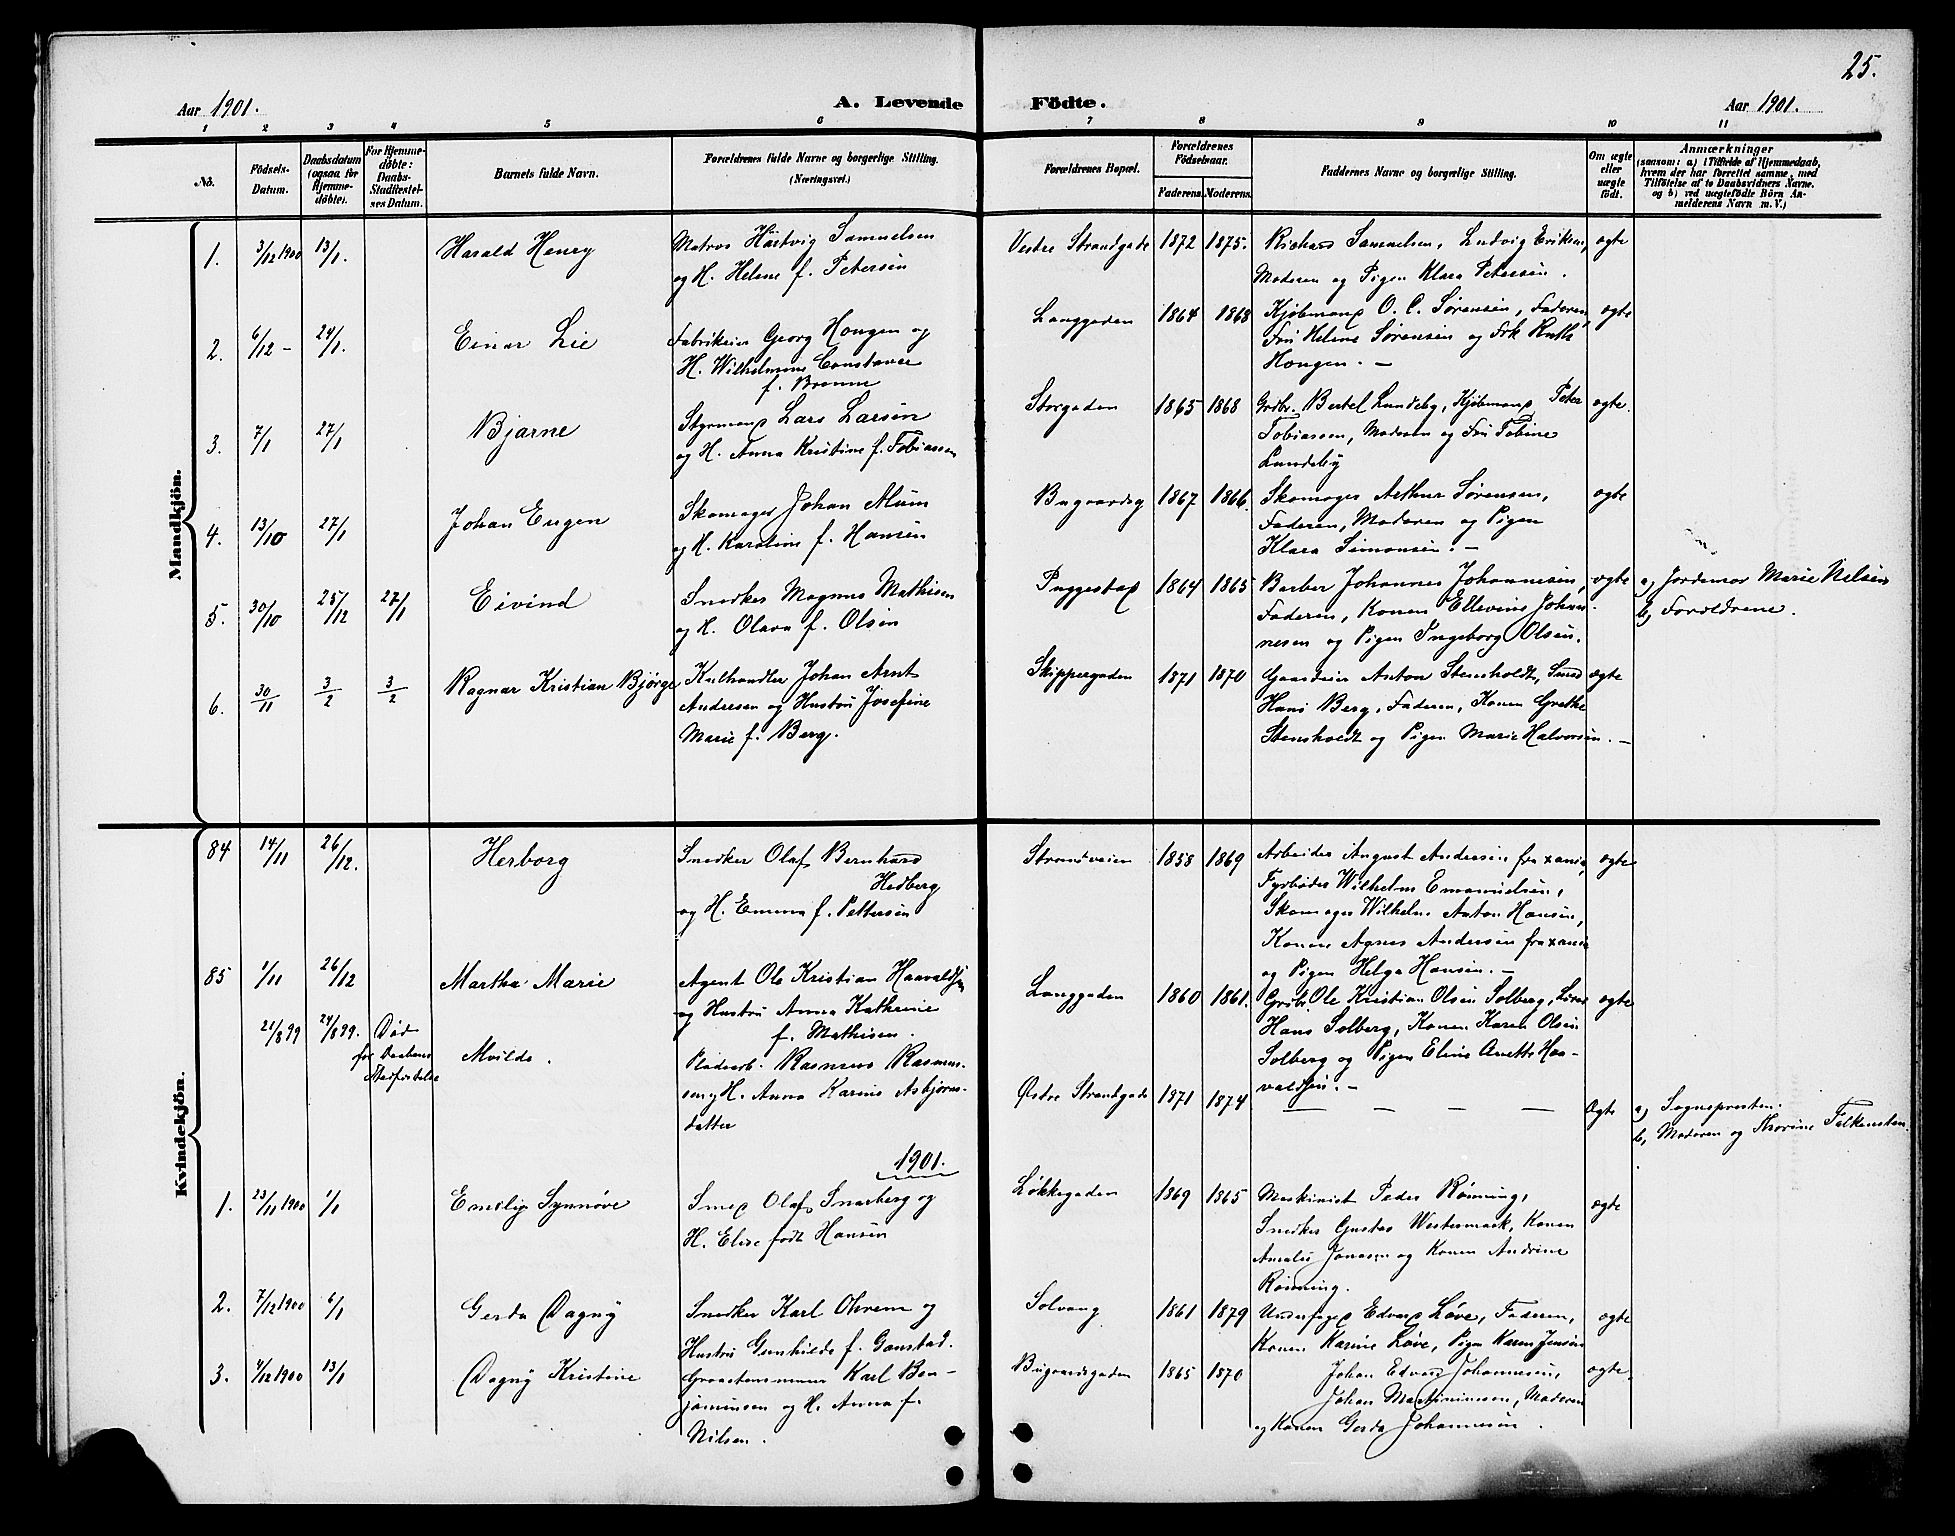 25.
Aar 1901.
A. Levende Födte.
Aar 1901.
1 2 3 4 5 6 7 8 9 10 11
No.
Födsels-
Datum.
Daabsdatum
(ogsaa for
Hjemme-
døbte).
For Hjemme-
døbte:
Daabs-
Stadfæstel-
ses Datum.
Barnets fulde Navn.
Forældrenes fulde Navne og borgerlige Stilling.
(Næringsvei.)
Forældrenes Bopæl.
Forældrenes
Födselsaar.
Faderens. Moderens.
Faddernes Navne og borgerlige Stilling.
Om ægte
eller
uægte
född.
Anmærkninger
(saasom: a) i Tilfælde af Hjemmedaab,
hvem der har forrettet samme, med
Tilföielse af to Daabsvidners Navne.
og b) ved uægtefödte Börn An-
melderens Navn m. V.)
Mandkjön.
1. 3/12 1900 13/1. Harald Henry
Matros Hartvig Samuelsen
og H. Helene f. Petersen
Vestre Strandgade 1872 1875.
Richard Samuelsen, Ludvig Eriksen,
Moderen og Pigen Klara Petersen.
ægte
2. 6/12 - 24/1. Einar Lie
Fabrikeier Georg Hougen og
H. Wilhelmine Constance
f. Brønne
Langgaden 1864 1868
Kjøbmand O. C. Sørensen, Faderen,
Fru Helene Sørensen og Frk Ruth
Hougen. -
ægte
3. 7/1 27/1 Bjarne
Styrmand Lars Larsen
og H. Anna Kristine f. Tobiassen
Storgaden 1865 1868
Grdbr. Bertel Lundeby, Kjøbmand Peter
Tobiassen, Moderen og Fru Tobine
Lundeby
ægte.
4. 13/10 27/1 Johan Eugen
Skomager Johan Alum
og H. Karoline f. Hansen
Bugaardsg 1867 1866.
Skomager Arthur Sørensen,
Faderen, Moderen og Pigen
Klara Simonsen. -
ægte
5. 30/10 25/12 27/1 Eivind
Snedker Magnus Mathisen
og H. Olava f. Olsen
Puggestad 1864 1865
Barber Johannes Johannesen,
Faderen, Konen Ellevine Johan-
nesen og Pigen Ingeborg Olsen.
ægte
a) Jordemor Marie Nelsen
b) Forældrene.
6. 30/11 3/2 3/2 Ragnar Kristian Bjørge
Kulhandler Johan Arnt
Andresen og Hustru Josefine
Marie f. Berg.
Skippergaden 1871 1870
Gaardeier Anton Stensholdt, Smed
Hans Berg, Faderen, Konen Grethe
Stensholdt og Pigen Marie Halvorsen. -
ægte
Kvindekjön.
84 14/11 26/12. Herborg
Snedker Olaf Bernhard
Hedberg
og H. Emma f. Pettersen
Strandveien 1858 1869
Arbeider August Andersen fra xania,
Fyrbøder Wilhelm Emanuelsen,
Skomager Wilhelm Anton Hansen,
Konen Agnes Andersen fra xania
og Pigen Helga Hansen. -
ægte
85 1/11 26/12 Martha Marie
Agent Ole Kristian Haavaldsen
og Hustru Anna Kathrine
f. Mathisen.
Langgaden 1860 1861.
Grdbr. Ole Kristian Olsen Solberg,
Hans Solberg, Konen Karen Olsen
Solberg og Pigen Eline Anette Haa-
valdsen. -
ægte
21/8 99 24/8 99. Død
før Daabens
Stadfæstelse
Alvilde.
Pladearb. Rasmus Rasmus-
sen og H. Anna Karine Asbjørns-
datter
Østre Strandgade 1871 1874
— — — — —
Ægte
a) Sognepresten.
b, Moderen og Thorine Falkensten.
1901.
1. 23/11 1900 1/1 Emely Synnøve
Smed Olaf Snarberg og
H. Elise født Hansen
Løkkegaden 1869 1865
Maskinist Peder Rønning,
Snedker Gustav Westermark, Konen
Amalie Jonasen og Konen Andrine
Rønning.
ægte
2. 7/12 1900 6/1 Gerda Dagny
Snedker Karl Ohrem og
Hustru Gunhilde f. Gaustad.
Solvang 1861 1879
Underfoged Edvard Løve, Faderen,
Konen Karine Løve, Pigen Karen Jensen
ægte
3. 4/12 1900 13/1 Dagny Kristine
Graastensminer Karl Ben-
jaminsen og H. Anna f.
Nilsen.
Bugaardsgaden 1865 1870
Johan Edvard Johannesen,
Johan Martiniussen, Moderen
og Konen Gerda Johannesen.
ægte.